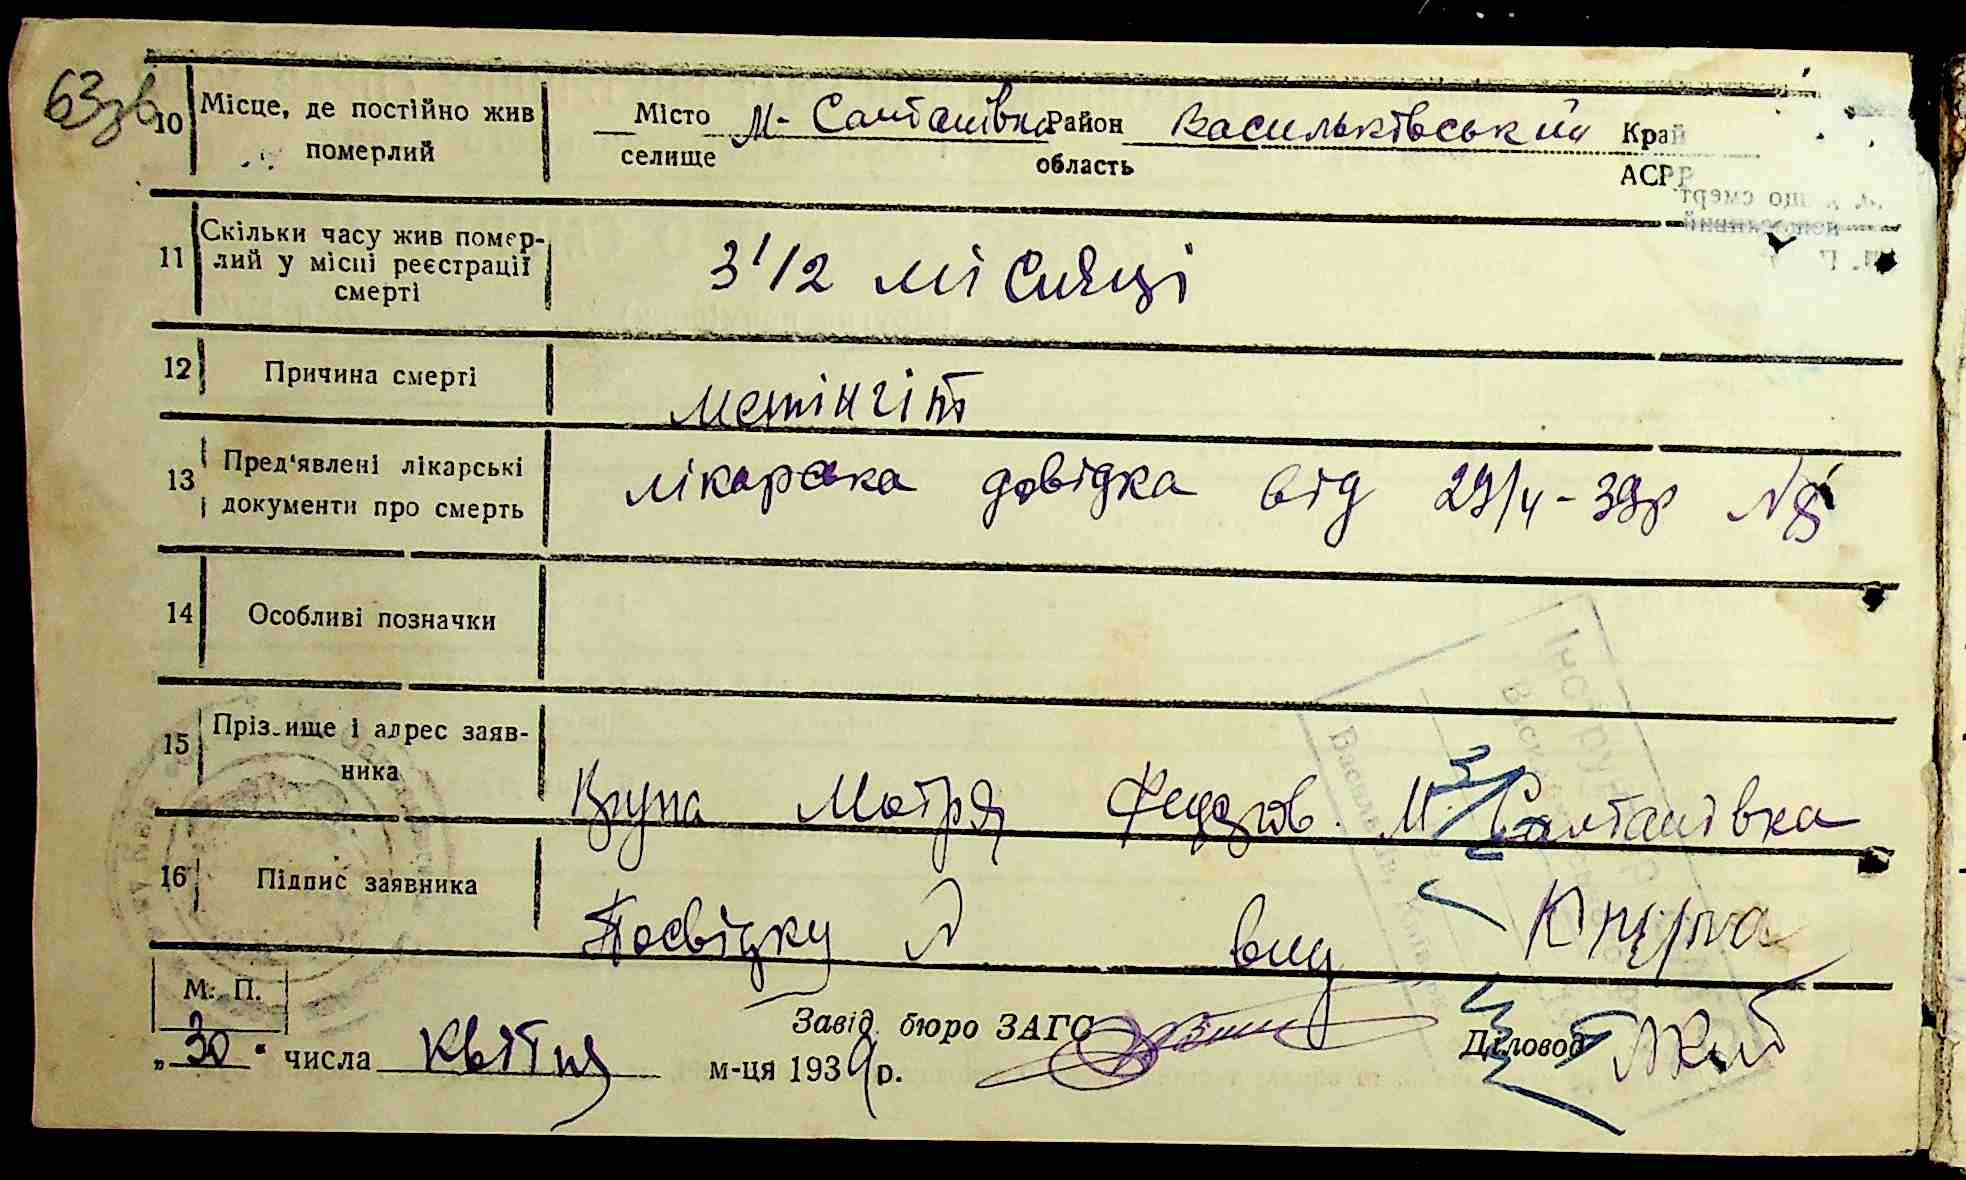 63зв
10 Місце, де постійно жив померлий
Місто селище М-Салтанівка Район область Васильківський Край АСРР
11 Скільки часу жив померлий у місці реєстрації смерті
3 1/2 місяці
12 Причина смерті
менінгіт
13 Пред'явлені лікарські документи про смерть
лікарська довідка від 29/4-39р №8
14 Особливі позначки
15 Прізвище і адрес заявника
Матря Федоров. М. Салтанівка
16 Підпис заявника
Посвідку
М. П.
„30“ числа квітня м-ця 1939р.
Завід. бюро ЗАГС
Діловод